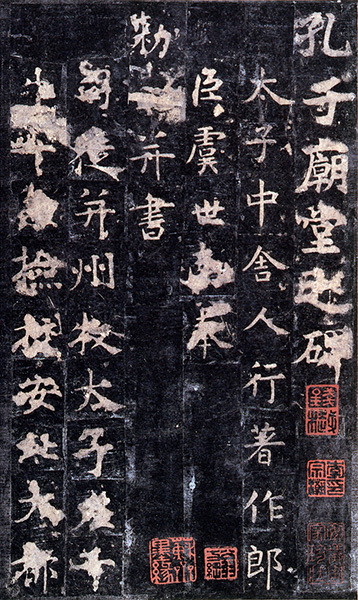 孔子廟堂之碑
太子中舍人行著作郎
臣虞世南奉
勅并書
司徒并州牧太子左千
牛兼撿挍安北大都